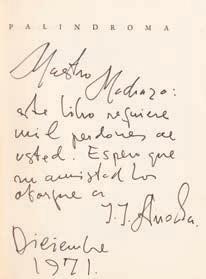 PALINDROMA
Maestro Madrazo:
este libro requiere
mil perdones de
usted. Espero que
su amistad los
otorgue a
J.J. Arreola.
Diciembre
1971.